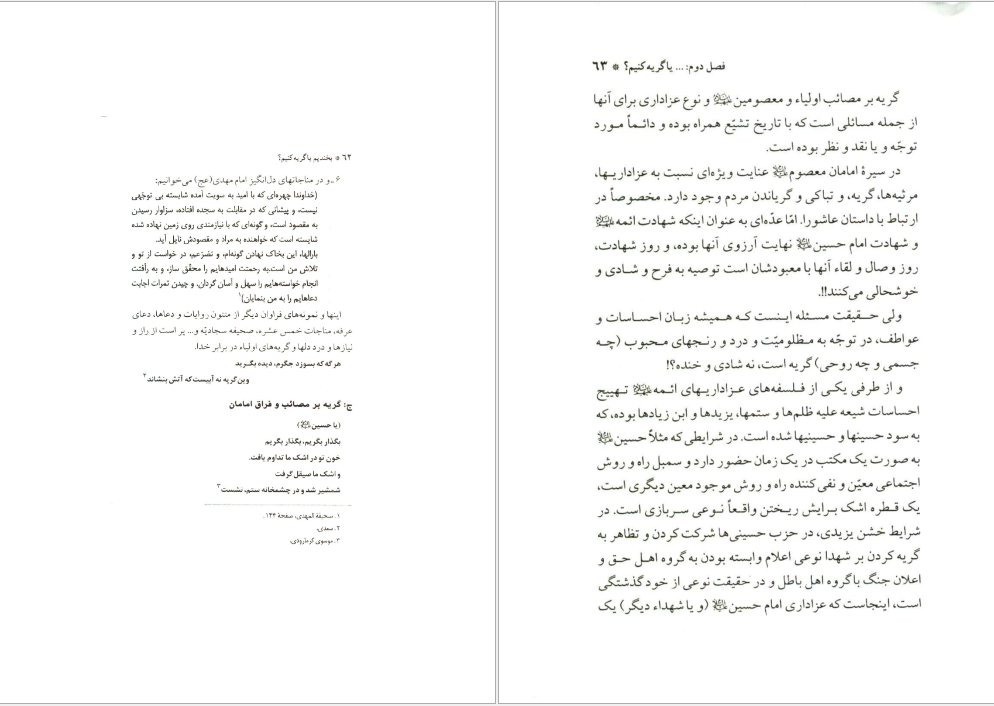 ۶۲ * بخندیم یا گریه کنیم؟
۶ـ و در مناجاتهای دل‌انگیز امام مهدی(عج) می‌خوانیم:
(خداوندا چهره‌ای که با امید به سویت آمده شایسته بی توجّهی
نیست، و پیشانی که در مقابلت به سجده افتاده، سزاوار رسیدن
به مقصود است، و گونه‌ای که با نیازمندی روی زمین نهاده شده
شایسته است که خواهنده به مراد و مقصودش نایل آید.
بارالها، این بخاک نهادن گونه‌ام، و تضرّعم، در خواست از تو و
تلاش من است.به رحمتت امیدهایم را محقّق ساز، و به رأفتت
انجام خواسته‌هایم را سهل و آسان گردان. و چیدن ثمرات اجابت
دعاهایم را به من بنمایان)۱
اینها و نمونه‌های فراوان دیگر از متون روایات و دعاها، دعای
عرفه، مناجات خمس عشره، صحیفه سجادیّه و... پر است از راز و
نیازها و درد دلها و گریه‌های اولیاء در برابر خدا.
هر گه که بسوزد جگرم، دیده بگرید
وین گریه نه آبیست که آتش بنشاند۲
ج: گریه بر مصائب و فراق امامان
(یا حسینﷺ)
بگذار بگریم، بگذار بگریم
خون تو در اشک ما تداوم یافت.
و اشک ما صیقل گرفت
شمشیر شد و در چشمخانه ستم، نشست۳
۱. صحیفة المهدی، صفحهٔ ۱۴۴.
۲. سعدی.
۳. موسوی گرمارودی.
فصل دوم: ... یا گریه کنیم؟ * ۶۳
گریه بر مصائب اولیاء و معصومین و نوع عزاداری برای آنها
از جمله مسائلی است که با تاریخ تشیّع همراه بوده و دائماً مورد
توجّه و یا نقد و نظر بوده است.
در سیرهٔ امامان معصوم عنایت ویژه‌ای نسبت به عزاداریها،
مرثیه‌ها، گریه، و تباکی و گریاندن مردم وجود دارد. مخصوصاً در
ارتباط با داستان عاشورا. امّا عدّه‌ای به عنوان اینکه شهادت ائمه
و شهادت امام حسین نهایت آرزوی آنها بوده، و روز شهادت،
روز وصال و لقاء آنها با معبودشان است توصیه به فرح و شادی و
خوشحالی می‌کنند!!.
ولی حقیقت مسئله اینست که همیشه زبان احساسات و
عواطف، در توجّه به مظلومیّت و درد و رنجهای محبوب (چه
جسمی و چه روحی) گریه است، نه شادی و خنده؟!
و از طرفی یکی از فلسفه‌های عزاداریهای ائمه تهییج
احساسات شیعه علیه ظلم‌ها و ستمها، یزیدها و ابن زیادها بوده، که
به سود حسینها و حسینیها شده است. در شرایطی که مثلاً حسین
به صورت یک مکتب در یک زمان حضور دارد و سمبل راه و روش
اجتماعی معیّن و نفی‌کننده راه و روش موجود معین دیگری است،
یک قطره اشک برایش ریختن واقعاً نوعی سربازی است. در
شرایط خشن یزیدی، در حزب حسینی‌ها شرکت کردن و تظاهر به
گریه کردن بر شهدا نوعی اعلام وابسته بودن به گروه اهل حق و
اعلان جنگ با گروه اهل باطل و در حقیقت نوعی از خودگذشتگی
است، اینجاست که عزاداری امام حسین (و یا شهداء دیگر) یک